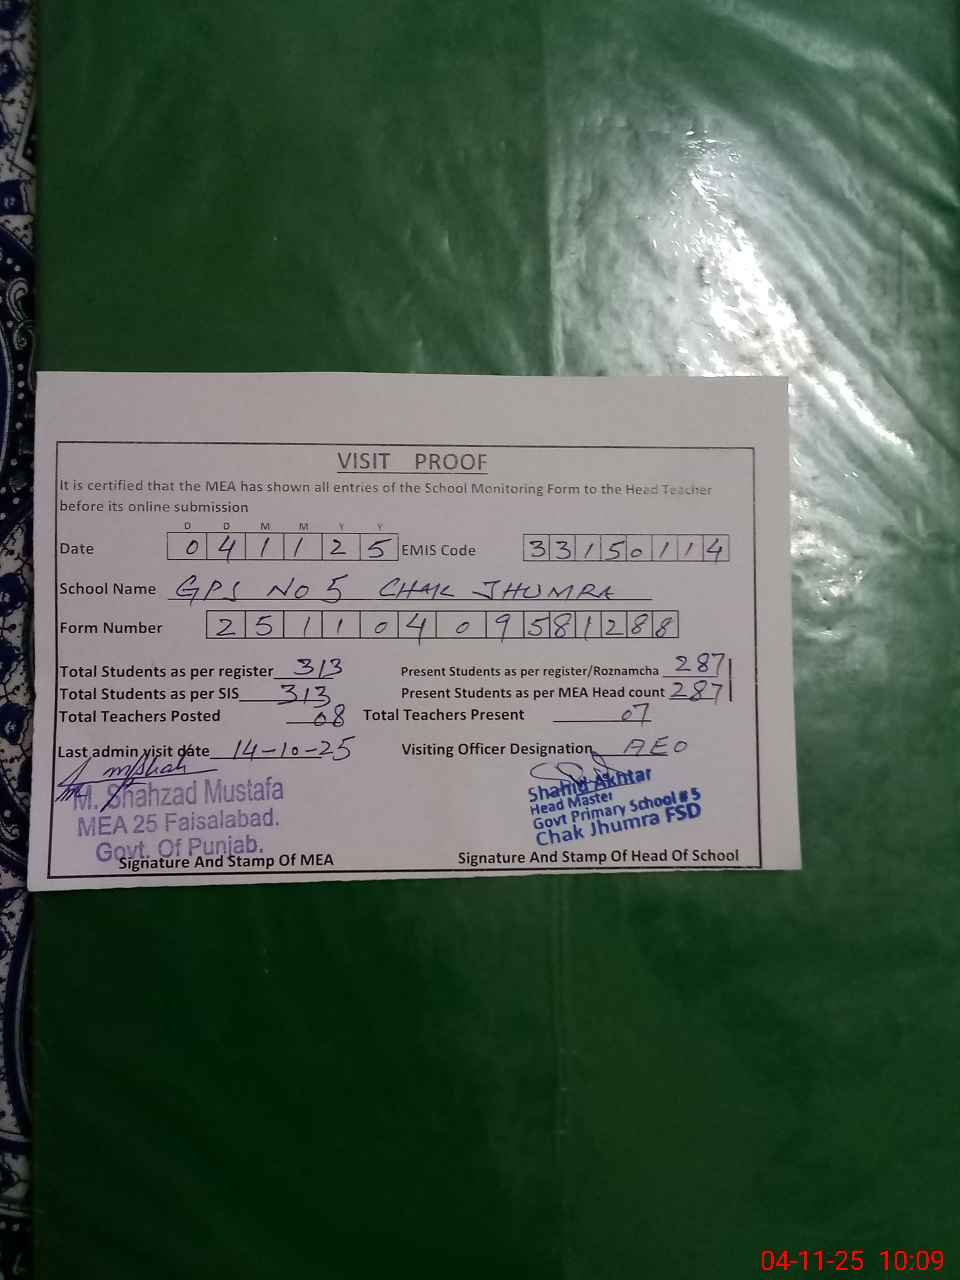 VISIT PROOF
It is certified that the MEA has shown all entries of the School Monitoring Form to the Head Teacher
before its online submission
D D M M Y Y
Date 0 4 1 1 2 5 EMIS Code 3 3 1 5 0 1 1 4
School Name GPS NO 5 CHAK JHUMRA
Form Number 2 5 1 1 0 4 0 9 5 8 1 2 8 8
Total Students as per register 313 Present Students as per register/Roznamcha 287
Total Students as per SIS 313 Present Students as per MEA Head count 287
Total Teachers Posted 08 Total Teachers Present 07
Last admin visit date 14-10-25 Visiting Officer Designation AEO
M. Shahzad Mustafa
MEA 25 Faisalabad.
Govt. Of Punjab.
Signature And Stamp Of MEA
Shahid Akhtar
Head Master
Govt Primary School # 5
Chak Jhumra FSD
Signature And Stamp Of Head Of School
04-11-25 10:09